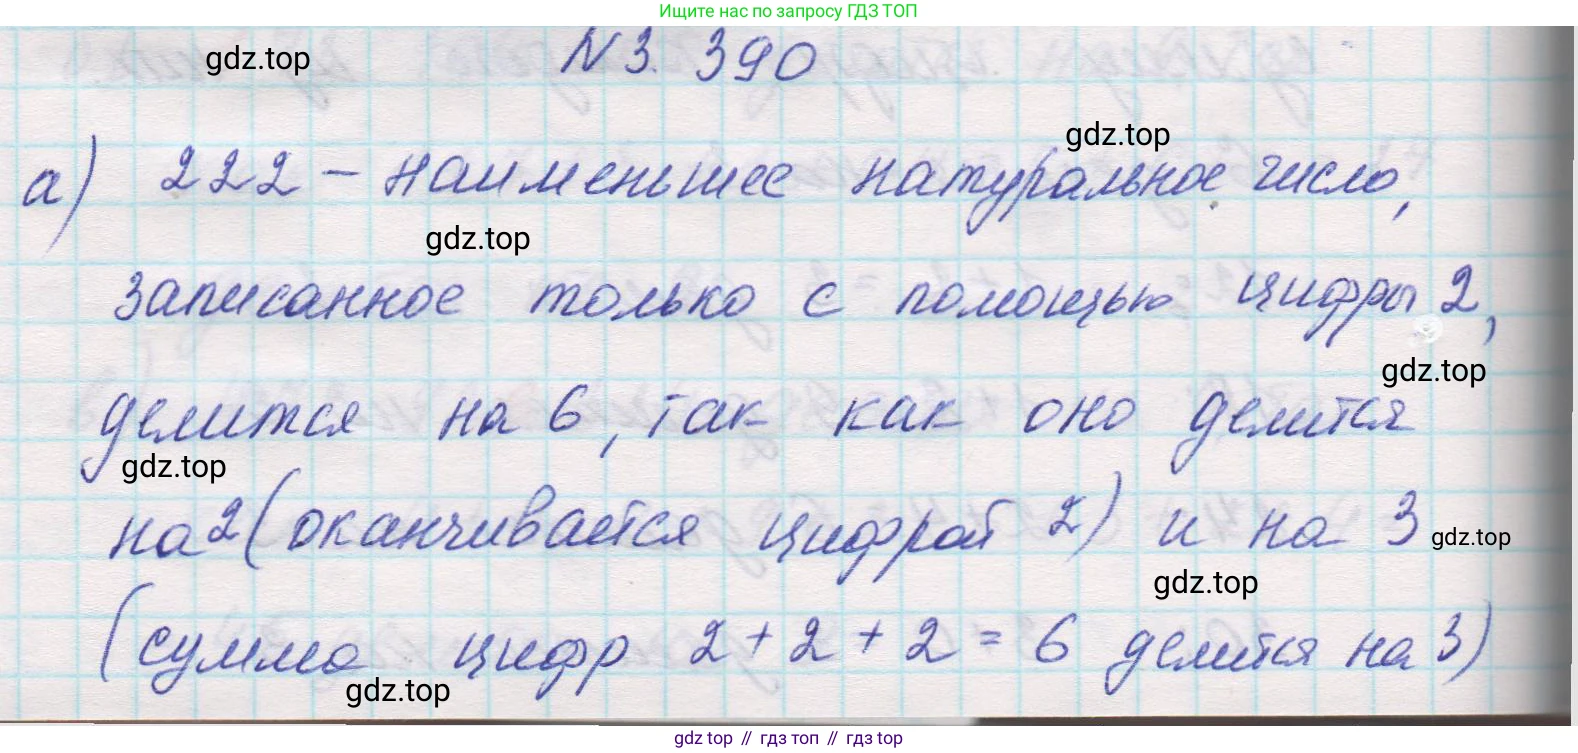 Ищите нас по запросу ГДЗ ТОП
gdz.top
N 3. 390
gdz.top
а) 222 – наименьшее натуральное число,
gdz.top
записанное только с помощью цифры 2,
gdz.top
делится на 6, так как оно делится
gdz.top
на 2 (оканчивается цифрой 2) и на 3
gdz.top
gdz.top
(сумма цифр 2 + 2 + 2 = 6 делится на 3)
gdz.top
gdz top // гдз топ // гдз top